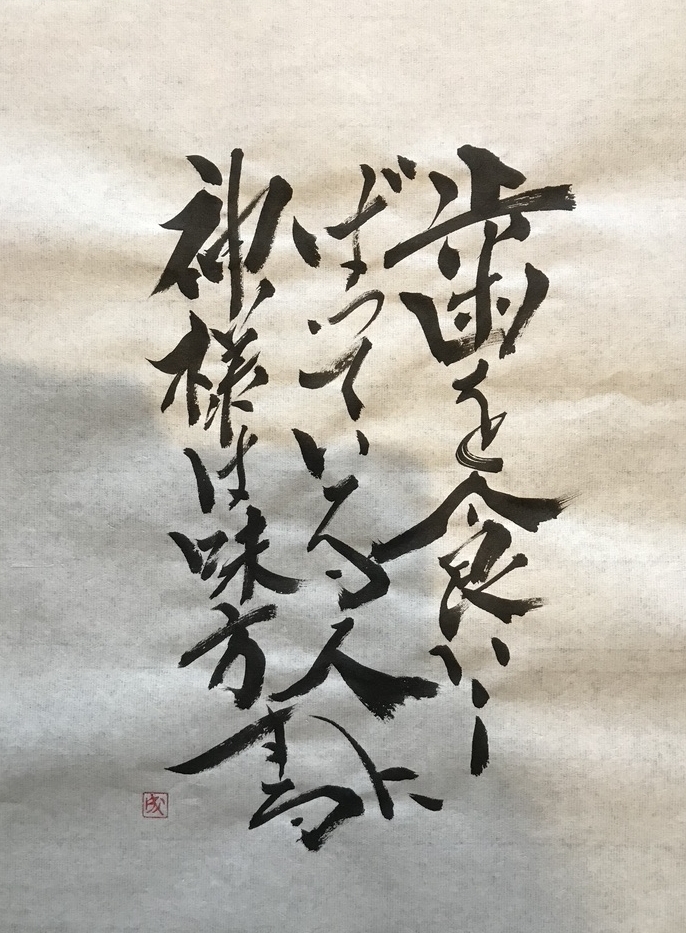 歯を食いし
ばっている人に
神様は味方する
成